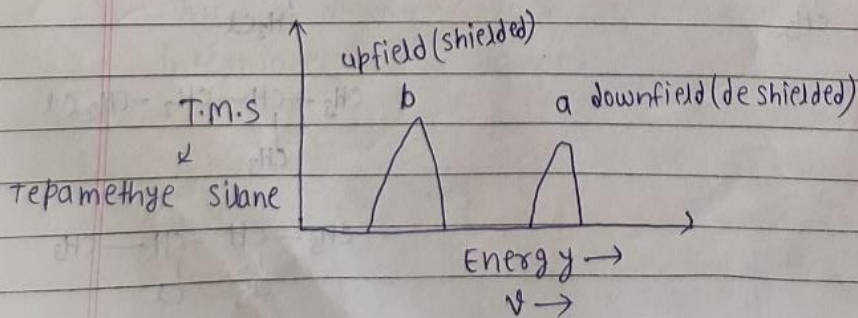 upfield (shielded)
T.M.S b a downfield (de shielded)
Tepamethye silane
Energy →
ν →